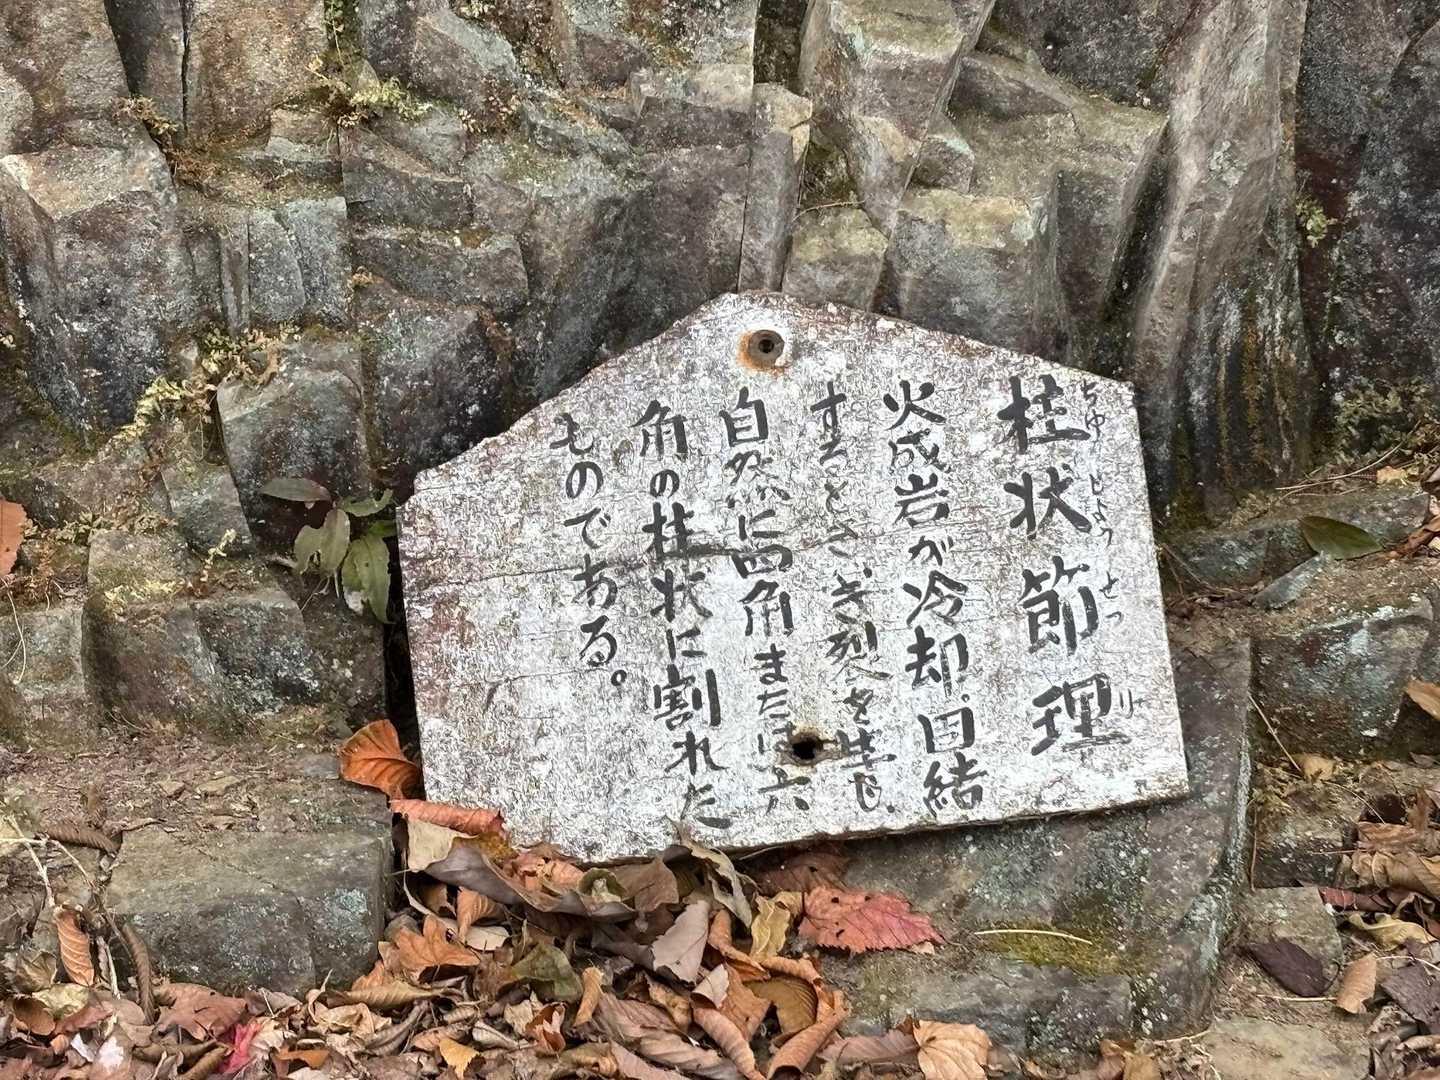 柱状節理
ちゅうじょうせつり
火成岩が冷却。固結
するとき、き裂を生じ、
自然に四角または六
角の柱状に割れた
ものである。